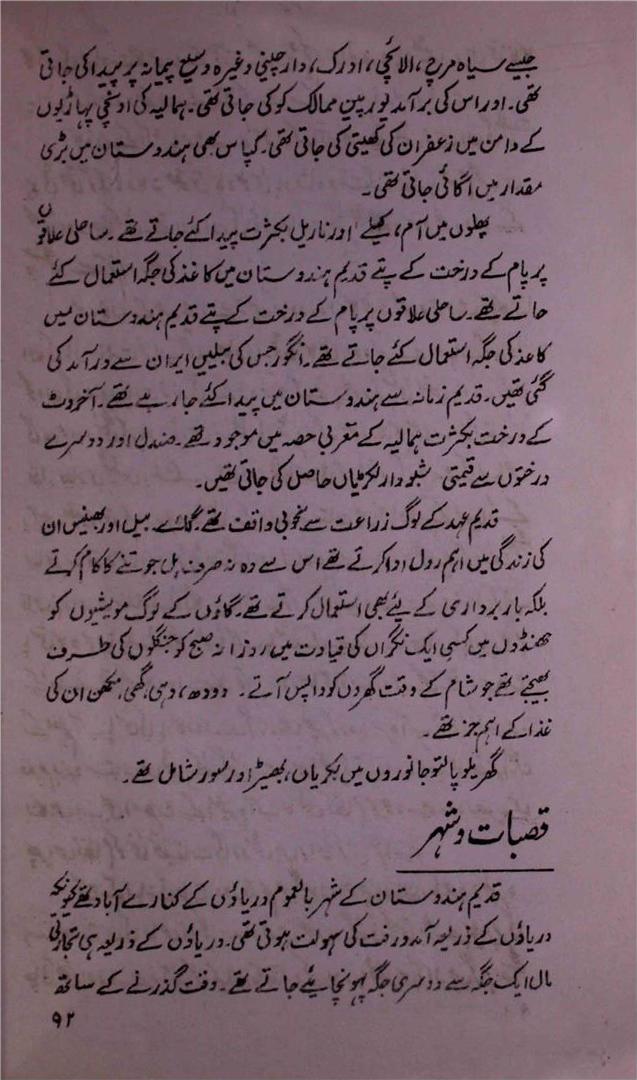 جیسے سیاہ مرچ، الائچی، ادرک، دارچینی وغیرہ وسیع پیمانہ پر پیدا کی جاتی
تھی۔ اور اس کی برآمد یورپین ممالک کو کی جاتی تھی۔ ہمالیہ کی اونچی پہاڑیوں
کے دامن میں زعفران کی کھیتی کی جاتی تھی۔ کپاس بھی ہندوستان میں بڑی
مقدار میں اگائی جاتی تھی۔
پھلوں میں آم، کیلے اور ناریل بکثرت پیدا کئے جاتے تھے۔ ساحلی علاقوں
پر پام کے درخت کے پتے قدیم ہندوستان میں کاغذ کی جگہ استمال کئے
جاتے تھے۔ ساحلی علاقوں پر پام کے درخت کے پتے قدیم ہندوستان میں
کاغذ کی جگہ استمال کئے جاتے تھے۔ انگور جس کی بیلیں ایران سے درآمد کی
گئی تھیں۔ قدیم زمانہ سے ہندوستان میں پیدا کئے جا رہے تھے۔ اخروٹ
کے درخت بکثرت ہمالیہ کے مغربی حصہ میں موجود تھے۔ صندل اور دوسرے
درختوں سے قیمتی شبودار لکڑیاں حاصل کی جاتی تھیں۔
قدیم عہد کے لوگ زراعت سے بخوبی واقف تھے۔ گائے بیل اور بھینس ان
کی زندگی میں اہم رول ادا کرتے تھے اس سے وہ نہ صرف ہل جوتنے کا کام کرتے
بلکہ باربرداری کے لیئے بھی استمال کرتے تھے۔ گاؤں کے لوگ مویشیوں کو
جھنڈوں میں کسی ایک نگراں کی قیادت میں روزانہ صبح کو جنگلوں کی طرف
بھیجتے تھے جو شام کے وقت گھروں کو واپس آتے۔ دودھ، دہی، گھی، مکھن ان کی
غذا کے اہم جز تھے۔
گھریلو پالتو جانوروں میں بکریاں، بھیڑ اور سور شامل تھے۔
قصبات و شہر
قدیم ہندوستان کے شہر بالعموم دریاؤں کے کنارے آباد تھے کیونکہ
دریاؤں کے ذریعہ آمدورفت کی سہولت ہوتی تھی۔ دریاؤں کے ذریعہ ہی تجارتی
مال ایک جگہ سے دوسری جگہ پہونچایئے جاتے تھے۔ وقت گذرنے کے ساتھ
۹۲